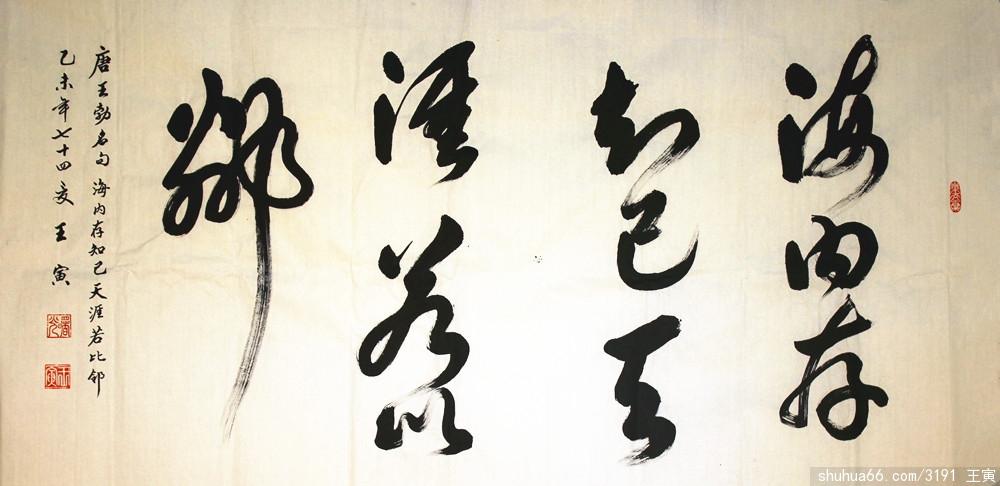 海内存
知己天
涯若比
邻
唐王勃名句 海内存知己天涯若比邻
乙未年七十四叟 王寅
shuhua66.com/3191 王寅